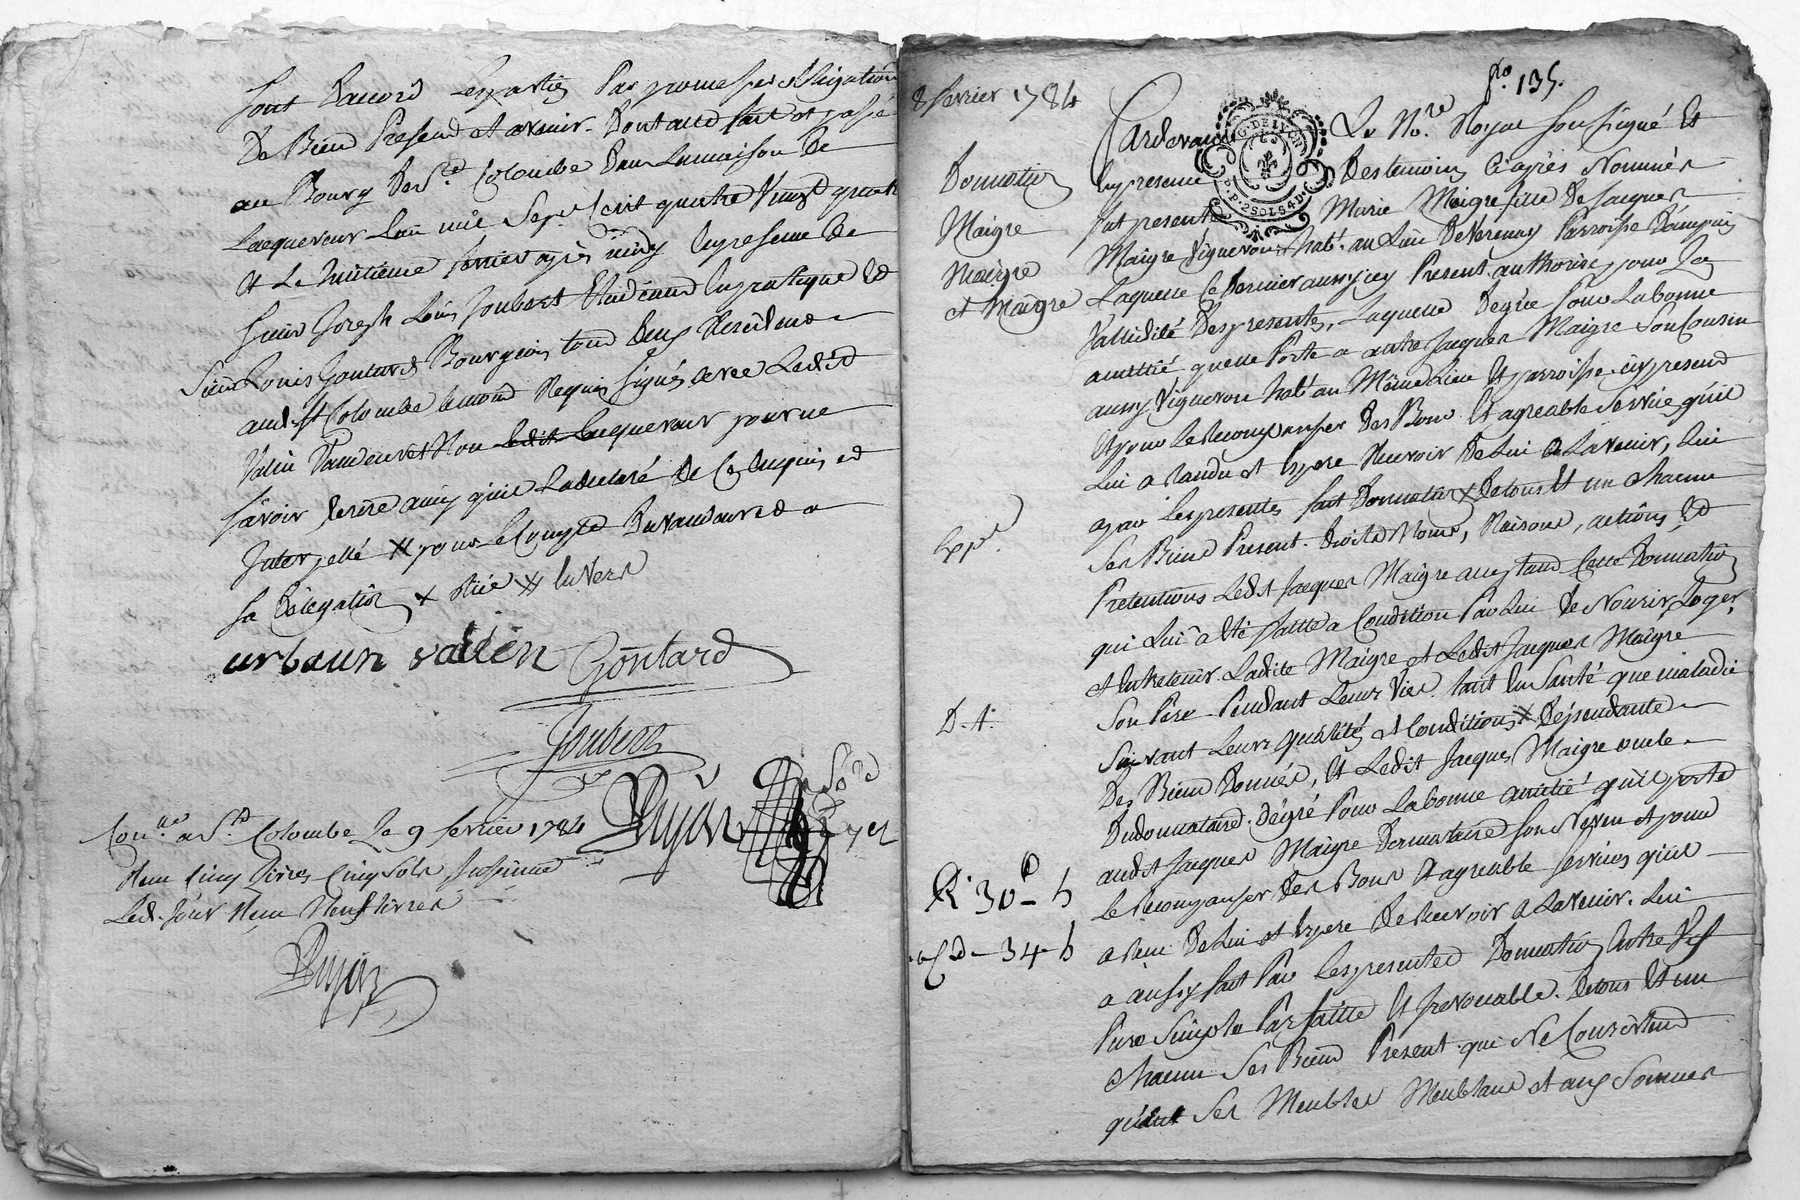 sont daccord les parties par promesses obligation
de Bien Present et avenir. Dont acte fait et passé
au Bourg de Ste Colombe dans la maison de
Lacquereur Lan mil Sept Cent quatre Vingt quatre
et Le huitieme fevrier après midy en presence de
Sieur Joseph Louis Joubert Etudiant en pratique et
Sieur Louis Gontard Bourgeois tous deux Residents
aud. St Colombe temoins Requis signés avec Ledit
Valin Vandeur et Non Ledit Lacquereur pour ne
savoir ecrire ainsy quil La declaré de Ce enquis et
Interpellé # pour le Compte du vandeur
sa delegation x Rié # en vers
urbain vallen Gontard
Joubert
Dujon
Con.lé a Ste Colombe Le 9 fevrier 1784
Reçu Cinq Livres Cinq Sols
Led. Jour Reçu Neuf Livres
Dujon
8 fevrier 1784
fo. 135.
G. DE LYON
P. 2 SOLS 4 D.
Pardevant Le No.re Royal soussigné et
Donnation
Maigre
Maigre
et Maigre
En presence Des temoins Ci après Nommés
fut presente Marie Maigre fille De Jacques
Maigre Vigneron habt. au Lieu De Verenay Parroisse Dampuis
Laquelle Ce dernier aussy icy Present authorise pour La
Vallidité Des presentes, Laquelle De gré Pour La bonne
amittié quelle Porte a autre Jacques Maigre Son Cousin
aussy Vigneron habt au Même Lieu et parroisse icy present
et pour Le Recompanser Des Bons et agreable Service, qu'il
Lui a Randu et Espere Recevoir De Lui a Lavenir, Lui
a par Les presentes fait Donnation x De tous et un chacun
Expé.
Ses Biens Present. Droits Noms, Raisons, actions et
Pretentions Ledit Jacques Maigre acceptant Cette Donnation
qui Lui a Eté faitte a Condition Par Lui De Nourir, Loger,
et Entretenir Ladite Maigre et Ledit Jacques Maigre
D. t.
Son Pere Pendant Leurs Vies. tant En Santé que maladie
Suivant Leurs qualités et Conditions x Dépendante
Des Biens Donnés, et Ledit Jacques Maigre oncle
Du donnataire. De gré Pour La bonne amitié quil porte
audit Jacques Maigre Donnataire Son Neveu et pour
Le Recompanser Des Bons et agreable services quil
R. 30 - s
34 - s
a Reçu De Lui et Espere De Recevoir a Lavenir. Lui
a aussy fait Par Les presentes Donnation Entre Vifs
Pure Simple Parfaitte et Irevocable. De tous et un
chacun Ses Biens Present. qui Ne Consistent
quen Ses Meubles Meublant et aux Sommes